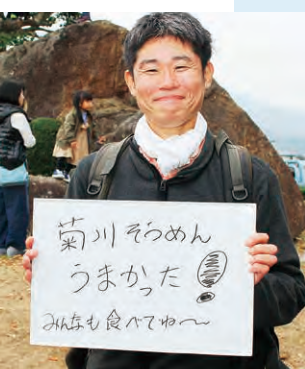 菊川そうめん
うまかった!
みんなも食べてね〜